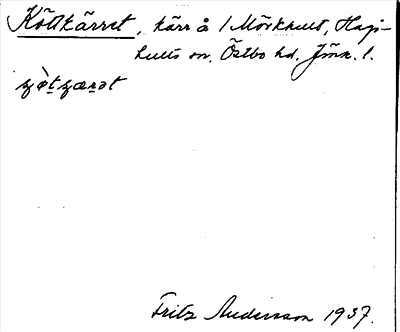 Köttkärret, kärr å 1 Mörkhult, Hags-
hults sn, Östbo hd. Jönk. l.
Fritz Andersson 1937.